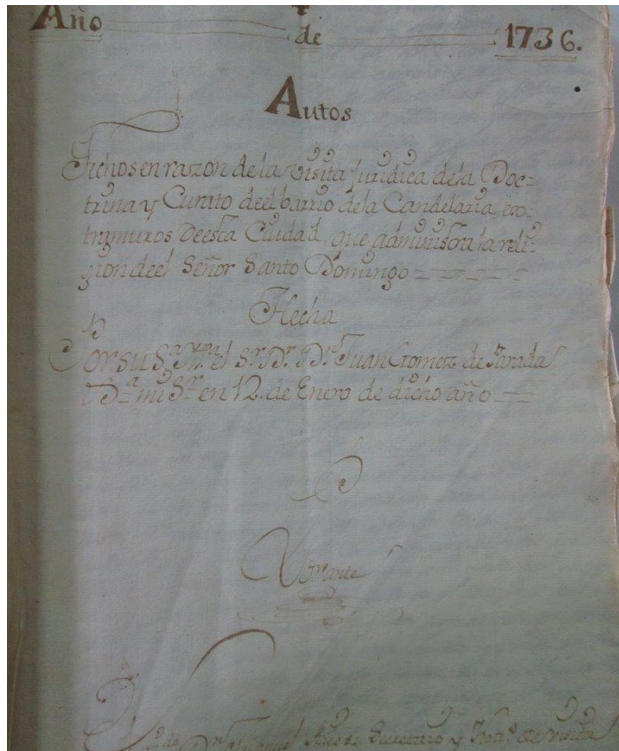 Año de 1736.
Autos
Fichos en razon de la visita juridica de la Doc-
trina y Curato deel barrio dela Candelaria, ex-
tramuros deesta Ciudad, que administra la reli-
gion deel Señor Santo Domingo
Hecha
Por su S.ª Yll.ma el S.r D.r D.n Juan Gomez de Parada
mi S.r en 12. de Enero de dicho año
y Not.º de visita